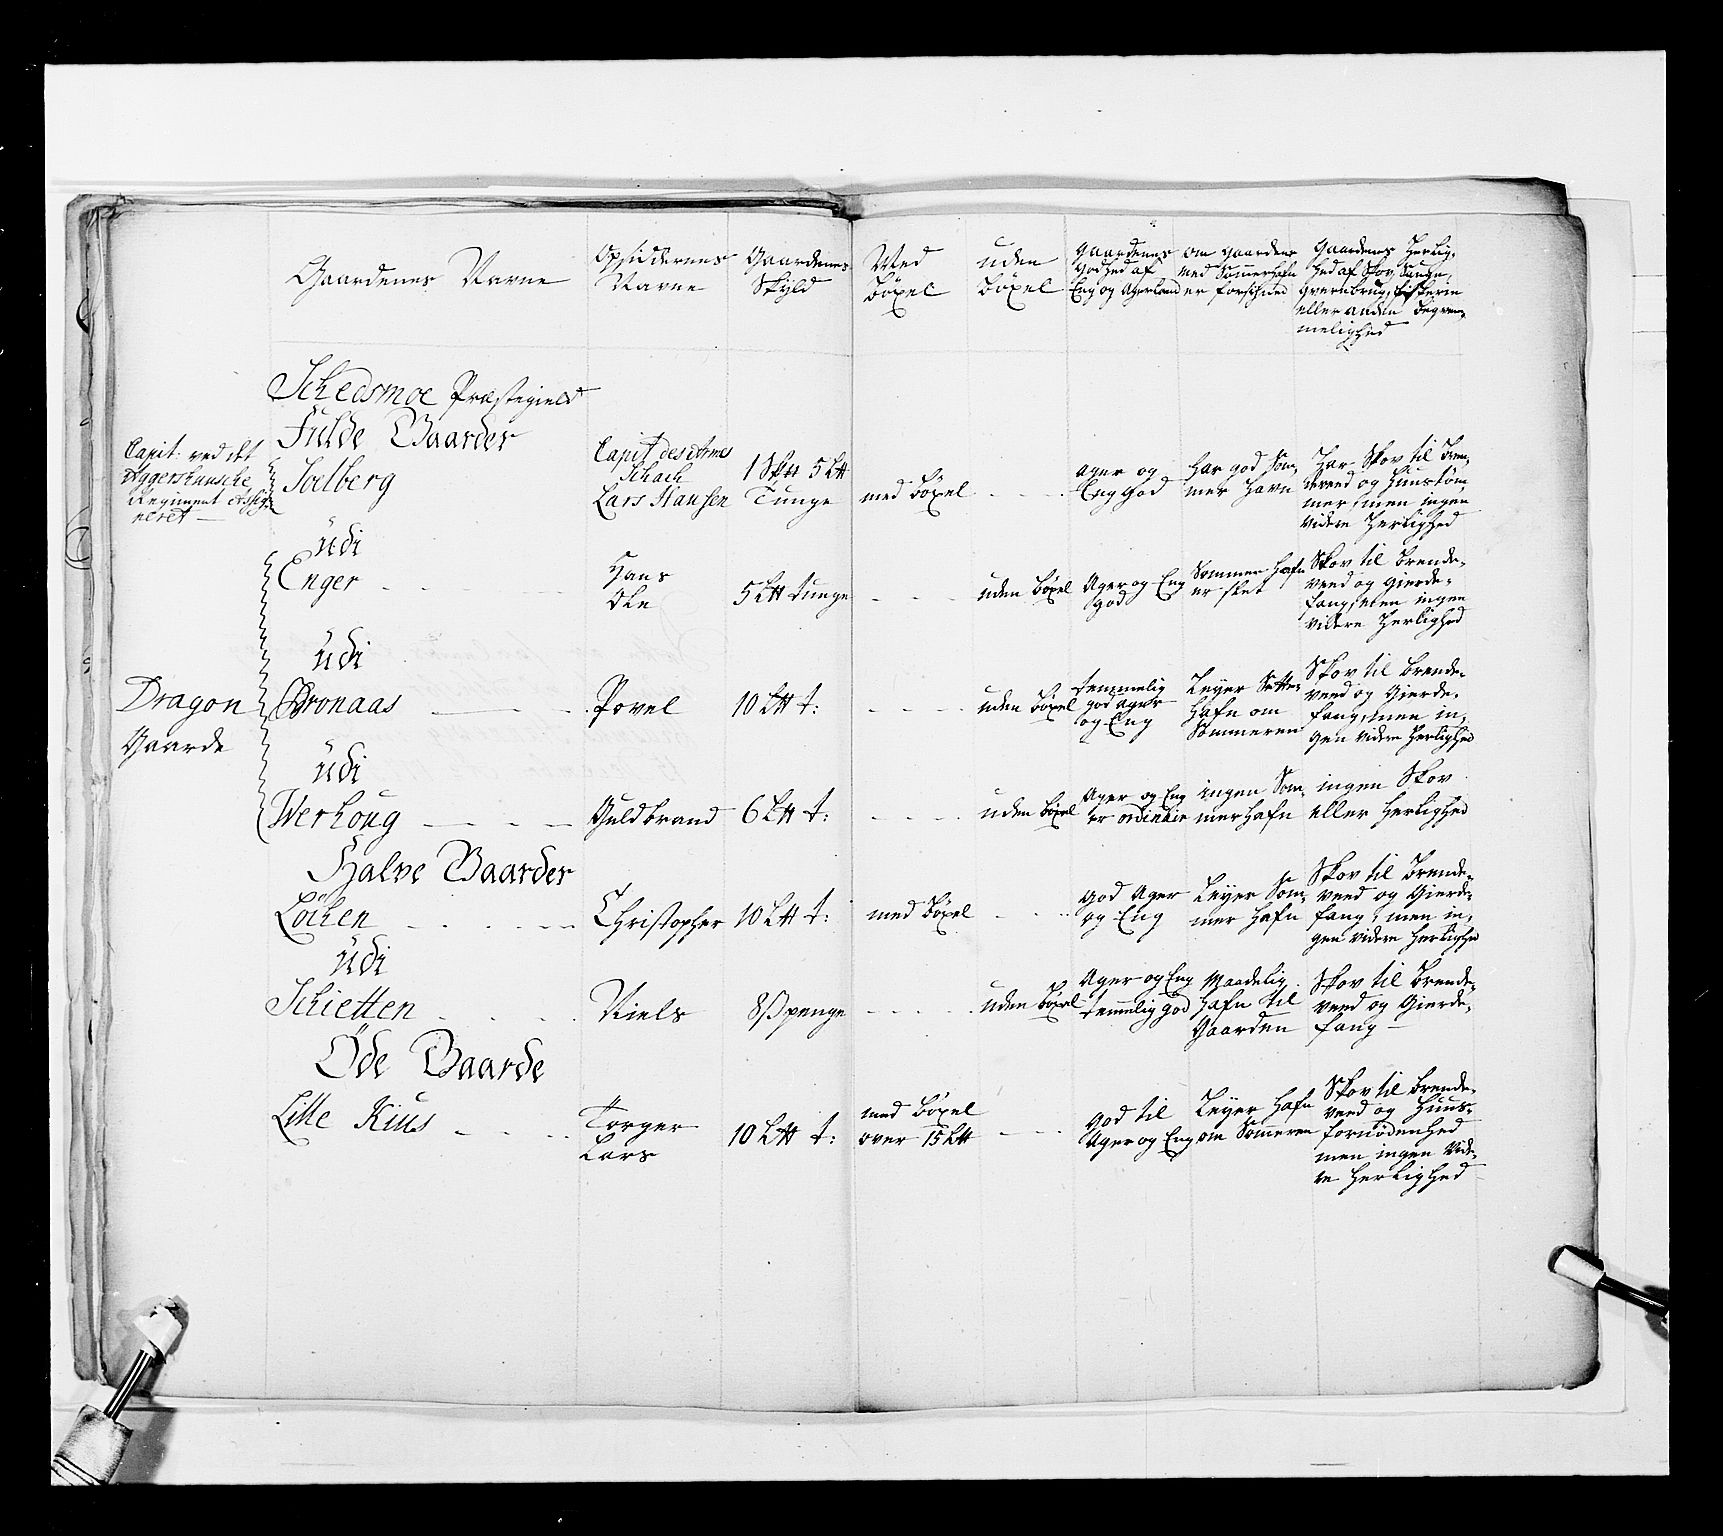 Gaardenes Navne
Opsiddernes
Navne
Gaardenes
Skÿld
Med
Bòxel
uden
bòxel
Gaardenes
Godhed af
Eng og Agerland
om gaarden
med Sommerhafn
er forsÿhned
Gaardens Herlig-
hed af Skov, Sauge,
qvernbrug, fiskerie
eller anden beqvem-
melighed
Schedsmoe Præstegield
Fulde Gaarder
Capit: ved det
Aggershuusche
Regiment assig-
neret —
Soelberg
Capit des Armes
Schach
Lars Hansen
1 Sktt 5 Ltt
Tunge
med bòxel
Ager og
Eng god
Har god Som-
mer havn
Har Skov til Bren-
deveed og Huustòm-
mer, men ingen
videre Herlighed
üdi
Enger
Hans
Ole
5 Ltt tunge
uden bòxel
Ager og Eng
god
Sommer hafn
er slet
Skov til Brende-
veed og gierde-
fang, men ingen
videre Herlighed
üdi
Dragon
Gaarde
Bronaas
Povel
10 Ltt t:
uden bòxel
temmelig
god ager
og Eng
Leyer Sætter
Hafn om
Sommeren
Skov til brende-
veed og Gierde-
fang, men in-
gen videre Herlighed
üdi
Werhoug
Guldbrand
6 Ltt t:
uden bòxel
Ager og Eng
er ordinair
ingen Som-
merhafn
ingen Skov
eller Herlighed
Halve Gaarder
Löchen
Christopher
10 Ltt t:
med bòxel
God Ager
og Eng
Leyer Som-
mer hafn
Skov til Brende-
veed og Gierde-
fang, men in-
gen videre herlighed
üdi
Schietten
Niels
8 ß penge
uden bòxel
Ager og Eng
temmelig god
Maadelig
hafn til
Gaarden
Skov til Brende-
veed og Gierde-
fang —
Öde Gaarde
Lille Kius
Torger
Lars
10 Ltt t:
med bòxel
over 15 Ltt
god til
Ager og Eng
Leyer hafn
om Sommeren
Skov til brende-
veed og Huus-
fornòdenhed
men ingen vide-
re herlighed